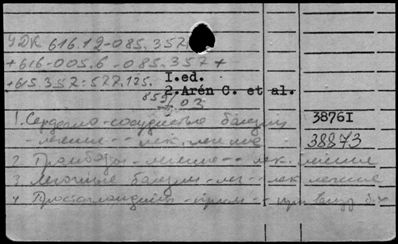 УДК 616.12-085.357
+616-005.6-085.357+
+615.357:577.175.
I.ed.
859 2.Arén C. et al.
03
1. Сердечно-сосудистые болезни 3876I
-лечение--лек. лечение 38873
2. Тромбозы-лечение--лек. лечение
3. Легочные болезни-леч--лек лечение
4. Простагландины-прим-